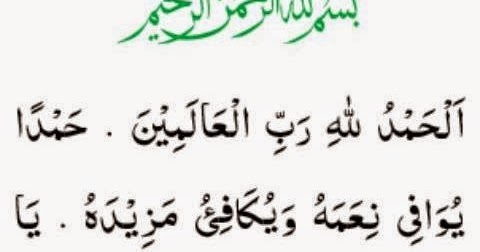 بسم الله الرحمن الرحيم
اَلْحَمْدُ لِلّٰهِ رَبِّ الْعَالَمِيْنَ . حَمْدًا
يُوَافِى نِعَمَهُ وَيُكَافِئُ مَزِيْدَهُ . يَا